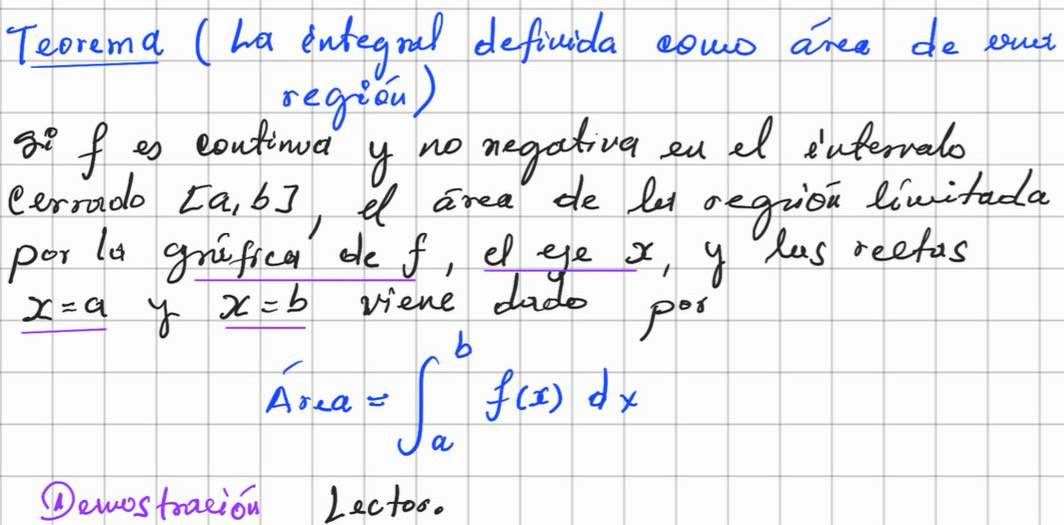 Teorema (La integral definida como área de una
región)
Si f es continua y no negativa en el intervalo
cerrado [a,b], el área de la región limitada
por la gráfica de f, el eje x, y las rectas
x=a y x=b viene dado por
Área = ∫_a^b f(x) dx
Demostración Lector.